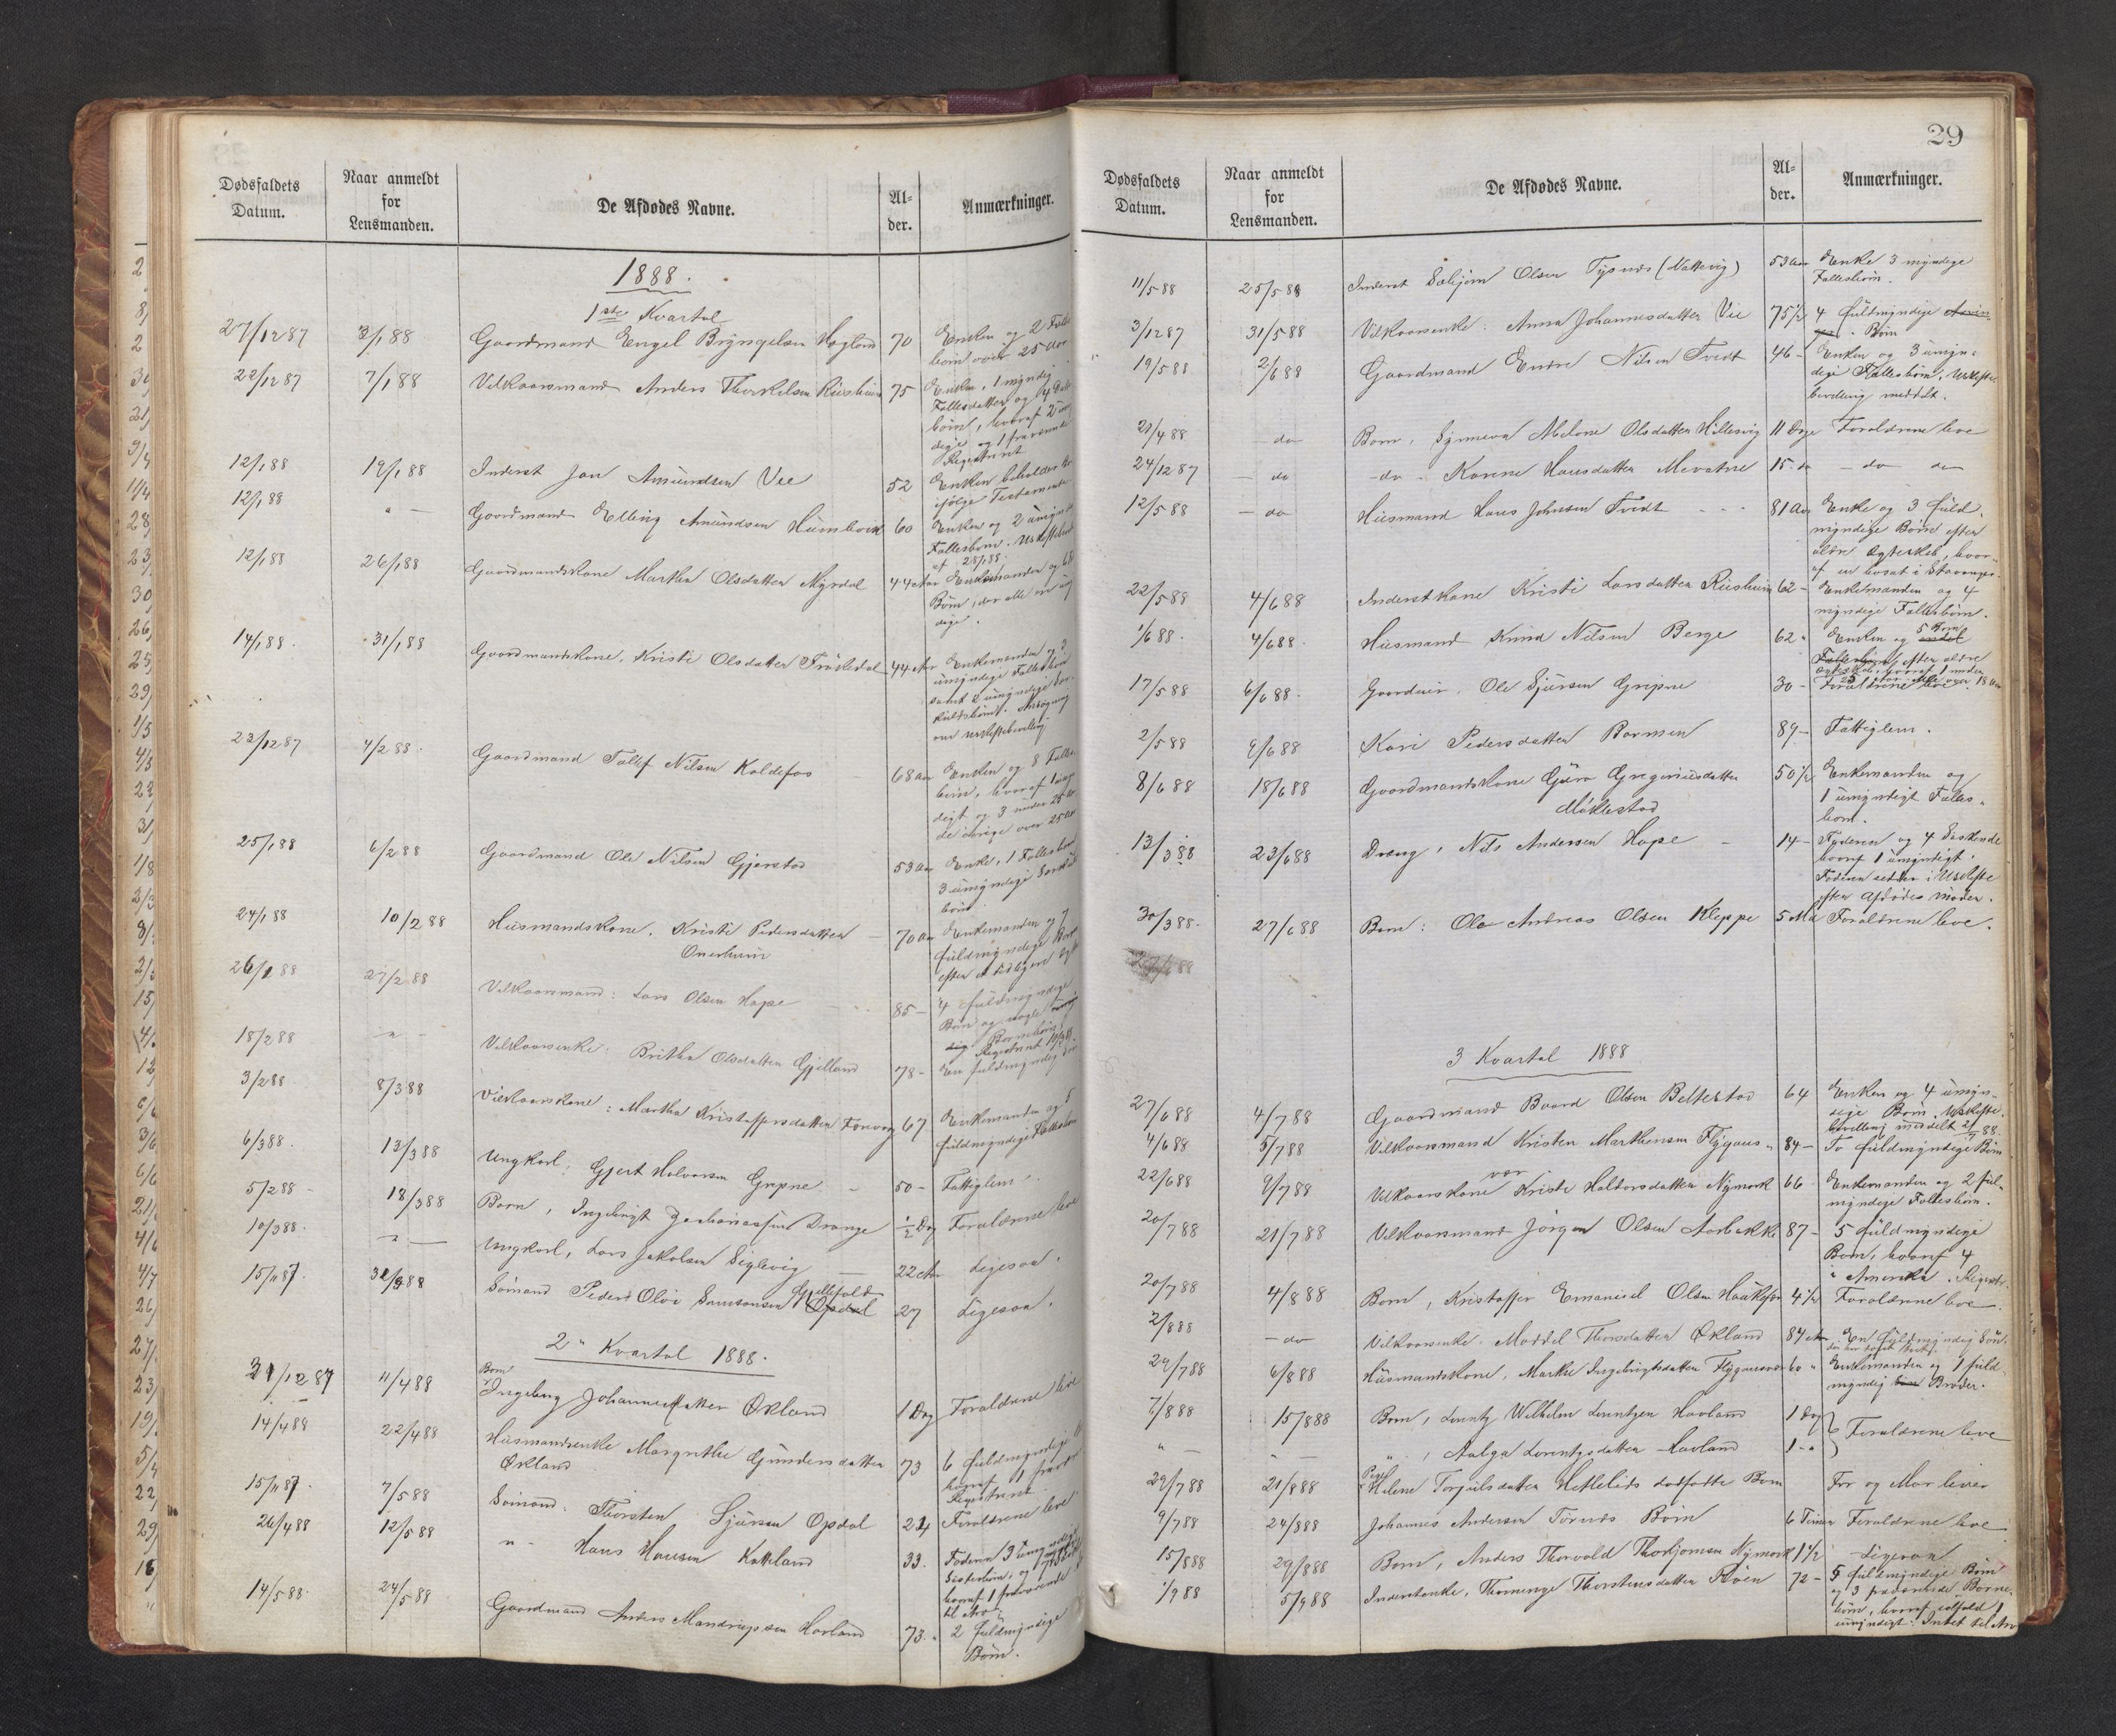 Dødsfaldets Datum. Naar anmeldt for Lensmanden. De Afdødes Navne. Al-der. Anmærkninger.
1888.
1ste Kvartal
27/12 87 3/1 88 Gaardmand Engel Bryngelsen Hogland 70 Enken og 2 Fælles
børn over 25 Aar
22/12 87 7/1 88 Vilkaarsmand Anders Thorkelsen Riisheim 75 Enken, 1 myndig
Fællesdatter og 4
børn, hvoraf 2
dige og 1 fraværende
Registreret
12/1 88 19/1 88 Inderst Jon Amundsen Vee 52 Enken beholder
ifølge Testamente
12/1 88 " — Gaardmand Elling Amundsen Humbork 60 Enken og 2 umyndige
Fællesbørn. Uskiftebevil
af 28/1 88.
12/1 88 26/1 88 Gaardmandskone Martha Olsdatter Myrdal 44 Aar Enkemanden og 6
Børn, der alle ere umyn
dige.
14/1 88. 31/1 88 Gaardmandskone, Kristi Olsdatter 44 Aar Enkemanden og 3
umyndige Fællesbørn
samt 2 umyndige Sær-
kuldsbørn. Ansøgning
om Uskiftebevilling
23/12 87 4/2 88. Gaardmand Tollef Nilsen Koldefos 68 Aar Enken og 8 Fælles
børn, hvoraf 1 umyn
digt og 3 under 25 Aar
de øvrige over 25 Aar
25/1 88 6/2 88 Gaardmand Ole Nilsen Gjerstad 53 Aar Enke, 1 Fællesbarn
3 umyndige Særkuld
børn
24/1 88 10/2 88 Husmandskone. Kristi Pedersdatter — 70 Aar Enkemanden og 7
Onerheim fuldmyndige Børn
efter et tidligere
26/1 88 27/2 88 Vilkaarsmand: Lars Olsen Hope 85 — 4 fuldmyndige
Børn og nogle umyn
dige Børnebørn
Registreret
18/2 88 — " — Vilkaarsenke: Britha Olsdatter Gjelland 78 - En fuldmyndig
3/2 88 8/3 88 Vilkaarskone: Martha Kristoffersdatter 67 Enkemanden og 5
fuldmyndige Fællesbørn
6/3 88. 13/3 88 Ungkarl: Gjert Halvorsen Gripne - 50 - Fattiglem.
5/2 88 - 18/3 88 Barn, Ingebrigt Johannessen Drange 1/2 Dag Forældrene leve
10/3 88. " — Ungkarl, Lars Jakobsen Siglevig — 22 Aar Ligesaa.
15/11 87. 31/3 88 Sømand Peder Olai Samsonsen Opdal Gjellefald 27 Ligesaa.
2n Kvartal 1888.
31/12 87 11/4 88 Barn Ingeborg Johannesdatter Økland 1 Dag Forældrene leve
14/4 88 22/4 88 Husmandsenke Margrethe Gundersdatter 73 6 fuldmyndige
Økland hvoraf 1 fravær
Registreret
15/11 87. 7/5 88 Sømand: Thorsten Sjursen Opdal 24 Forældrene leve
26/4 88 12/5 88 " - Hans Hansen Katteland 33. Faderen 3 umyndige
Søsterbørn, og
hvoraf 1 fraværende
til Arv
14/5 88. 24/5 88 Gaardmand Anders Mandrupsen Havland 73. " 2 fuldmyndige
Børn.
29
Dødsfaldets Datum. Naar anmeldt for Lensmanden. De Afdødes Navne. Al-der. Anmærkninger.
11/5 88 25/5 88 Inderst Sæbjørn Olsen Tysnes (Nattevig) 53 Aar Enke 3 myndige
Fællesbørn.
3/12 87 31/5 88 Vilkaarsenke: Anna Johannesdatter Vee 75 1/2 4 fuldmyndige Arvin-
ger. Børn
19/5 88 2/6 88 Gaardmand Endre Nilsen Tvedt 46 - Enken og 3 umyn-
dige Fællesbørn, Uskifte
bevilling meddelt.
21/4 88 — do Barn, Synneva Malene Olsdatter Hillesvig 11 Dage Forældrene leve
24/12 87 — do — do - Karene Hansdatter Mevatne 15. do — do do
12/5 88 — do Husmand Hans Johnsen Tvedt - - - 81 Aar Enke og 3 fuld
myndige Børn efter
ældre Ægteskab, hvor-
af en bosat i Stavanger
22/5 88 4/6 88 Inderstkone Kristi Larsdatter Riisheim 62 - Enkemanden og 4
myndige Fællesbørn.
1/6 88. 4/6 88. Husmand Knud Nilsen Berge 62 " Enken og 5 Børn
Fællesbørn, efter ældre
Ægteskab, hvoraf 1 under
17/5 88 6/6 88. Gaardeier. Ole Sjursen Gripne 30 - Forældrene leve.
2/5 88 9/6 88 Kari Pedersdatter Barmen 89 - Fattiglem.
8/6 88 18/6 88 Gaardmandskone Guro Gregoriusdatter 50 1/2 Enkemanden og
Møklestad 1 umyndigt Fælles-
barn.
13/3 88 23/6 88 Dreng, Nils Andersen Hope - 14 - Faderen og 4 Søskende
hvoraf 1 umyndigt.
Faderen sidder i Uskifte
efter Afdødes Moder.
30/3 88. 27/6 88 Barn: Ole Andreas Olsen Kleppe 5 Md Forældrene leve.
3 Kvartal 1888
27/6 88 4/7 88 Gaardmand Baard Olsen Beltestad 64 Enken og 4 umyn-
dige Børn. Uskifte-
bevilling meddelt 2/7 88.
4/6 88 5/7 88 Vilkaarsmand Kristen Marthinsen Flygans- 84 - To fuldmyndige Børn
vær
22/6 88 9/7 88 Vilkaarskone Kristi Haldorsdatter Nymark 66 - Enkemanden og 2 ful-
myndige Fællesbørn.
20/7 88 21/7 88 Vilkaarsmand Jørgen Olsen Aarbakke 87 - 5 fuldmyndige
Børn, hvoraf 4
i Amerika. Registr.
20/7 88 4/8 88 Barn, Kristoffer Emanuel Olsen Haukefær 4 1/2 Forældrene leve.
2/8 88 — do Vilkaarsenke. Maddel Thorsdatter Økland 84 Aar En fuldmyndig Søn.
29/7 88 6/8 88 Husmandskone, Marthe Ingebrigtsdatter Flygansvær 60 " Enkemanden og 1 fuld
myndig Broder.
7/8 88 15/8 88 Barn, Lorentz Wilhelm Lorentzen Havland 1 Dag } Forældrene leve
" — " — " , Aalga Lorentzdatter Havland 1 - "
29/7 88 21/8 88 Helene Torgilsdatter Hettelids dødfødte Barn Far og Mor lever
9/7 88 24/8 88 Johannes Andersen Børn 6 Timer Forældrene leve
15/8 88 29/8 88 Barn, Anders Thorvald Thorbjørnsen Nymark 1 1/2 Ligesaa
1/9 88 5/9 88 Inderstenke, Thorstensdatter 72 - 5 fuldmyndige Børn
og 3 fraværende Børne-
børn, hvoraf 1
umyndigt. Intet til Arv